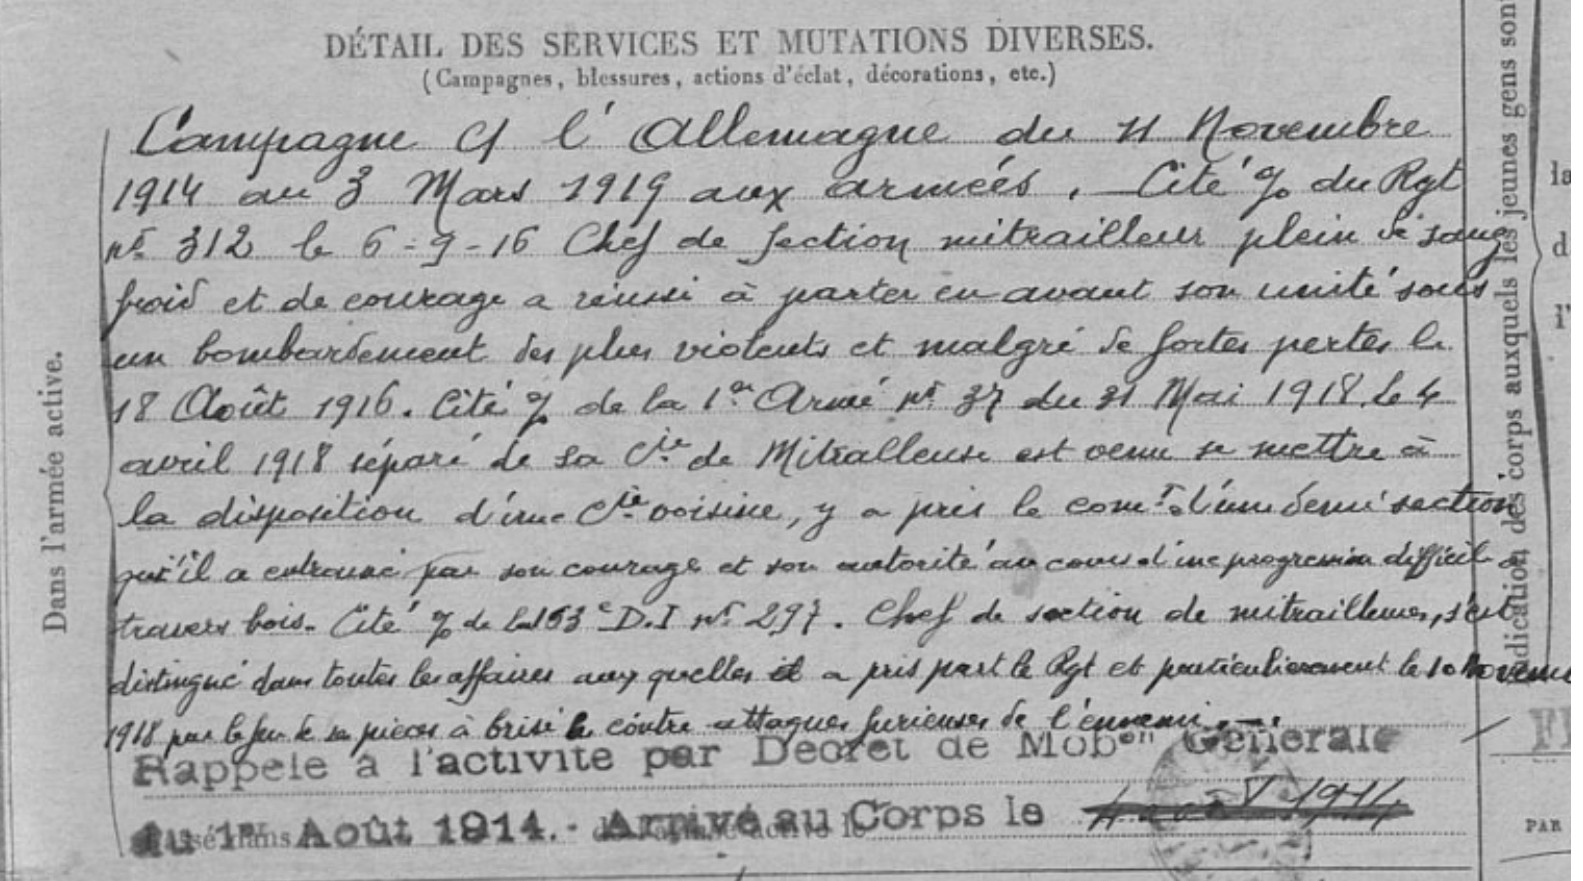 DÉTAIL DES SERVICES ET MUTATIONS DIVERSES.
(Campagnes, blessures, actions d'éclat, décorations, etc.)
Campagne C/ l'Allemagne du 11 Novembre
1914 au 3 Mars 1919 aux armées. Cité % du Rgt
n° 312 le 6-9-16 Chef de section mitrailleur plein de sang
froid et de courage a réussi à porter en avant son unité sous
un bombardement des plus violents et malgré de fortes pertes le
18 Août 1916. Cité % de la 1re Armé n° 37 du 31 Mai 1918. le 4
avril 1918 séparé de sa Cie de Mitralleuse est venu se mettre à
la disposition d'une Cie voisine, y a pris le comt d'une demi section
qu'il a entrainé par son courage et son autorité au cours d'une progression difficile à
travers bois. Cité % de la 163e D.I n° 297. Chef de section de mitrailleuses, s'est
distingué dans toutes les affaires aux quelles il a pris part le Rgt et particulierement le 10 Novembre
1918 par le feu de sa pièces à brisé le contre attaques furieuses de l'ennemi.
Rappelé à l'activité par Décret de Mobon Générale
du 1er Août 1914. - Arrivé au Corps le
Dans l'armée active.
Indication des corps auxquels les jeunes gens sont
la
d
l'
PAR